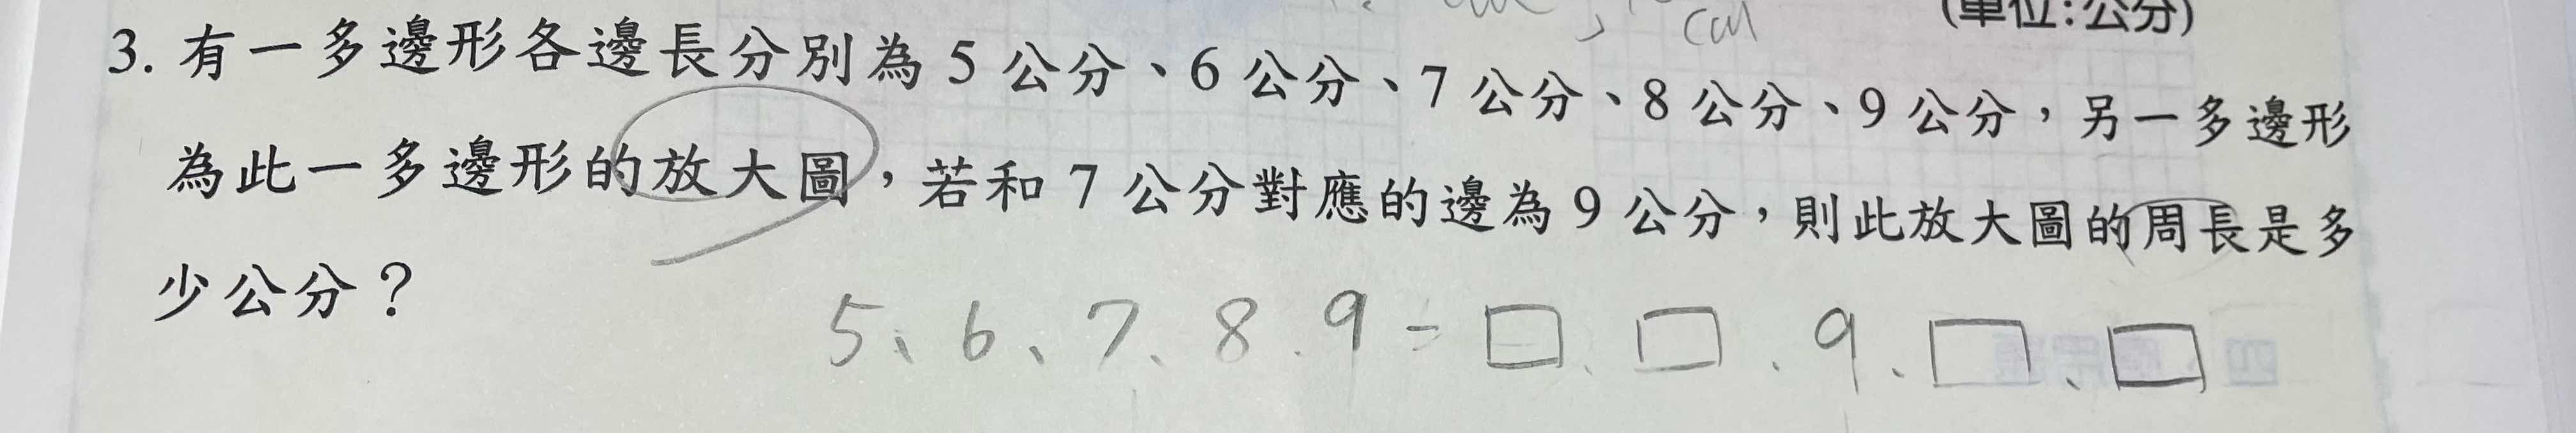 (單位:公分)
cm
3. 有一多邊形各邊長分別為 5 公分、6 公分、7 公分、8 公分、9 公分，另一多邊形
為此一多邊形的放大圖，若和 7 公分對應的邊為 9 公分，則此放大圖的周長是多
少公分？
5、6、7、8、9 = □、□、9、□、□